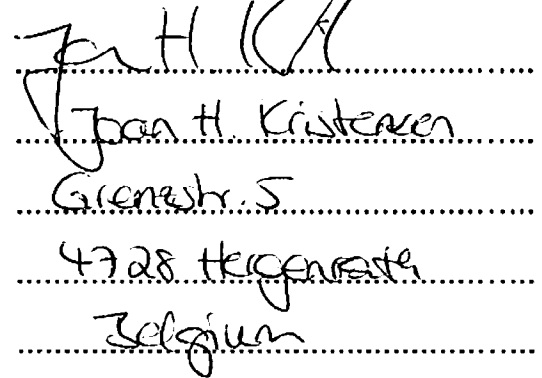 Joan H. Kristensen
Grenzstr. 5
4728 Hergenrath
Belgium